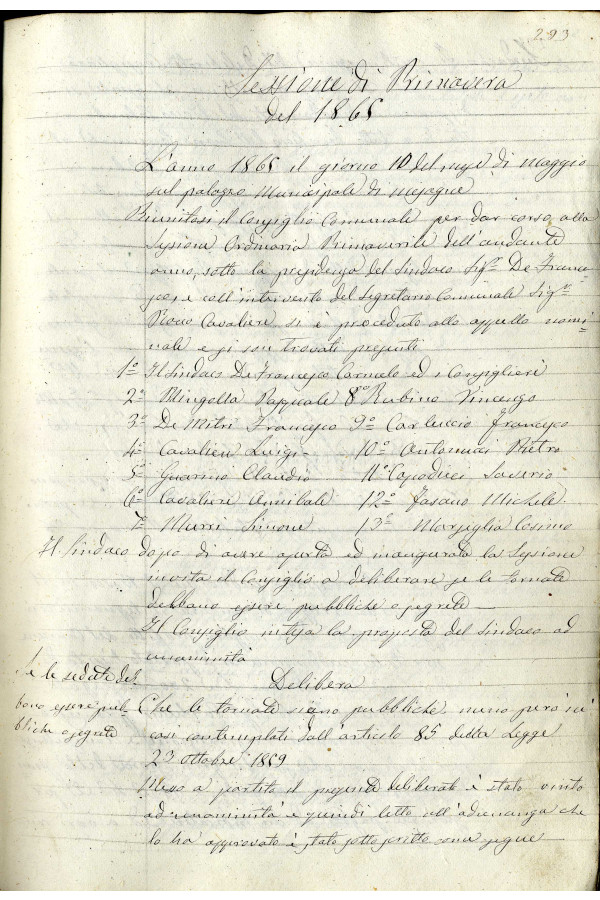 293
Sessione di Primavera
del 1865
L'anno 1865 il giorno 10 del mese di Maggio
sul palazzo Municipale di Mesagne
Riunitosi il Consiglio Comunale per dar corso alla
Sessione Ordinaria Primaverile dell'andante
anno, sotto la presidenza del Sindaco Sig.r De France-
sco, e coll'intervento del Segretario Comunale Sig.r
Rocco Cavaliere si è proceduto allo appello nomi-
nale e si son trovati presenti
1º Il Sindaco De Francesco Carmelo ed i Consiglieri
2º Mingolla Pasquale 8º Rubino Vincenzo
3º De Mitri Francesco 9º Carluccio Francesco
4º Cavalieri Luigi - 10º Antonucci Pietro
5º Guarino Claudio 11º Capodieci Saverio
6º Cavaliere Annibale 12º Fasano Michele
7º Murri Simone 13º Marseglia Cosimo
Il Sindaco dopo di avere aperta ed inaugurata la Sessione
invita il Consiglio a deliberare se le tornate
debbano essere pubbliche o segrete —
Il Consiglio intesa la proposta del Sindaco ad
unanimità
Delibera
Se le sedute deb-
bano essere pub-
bliche o segrete
Che le tornate siano pubbliche, meno però nei
casi contemplati dall'articolo 85 della Legge
23 Ottobre 1859
Messo a partito il presente deliberato è stato vinto
ad unanimità e quindi letto all'adunanza che
lo ha approvato è stato sottoscritto come segue —